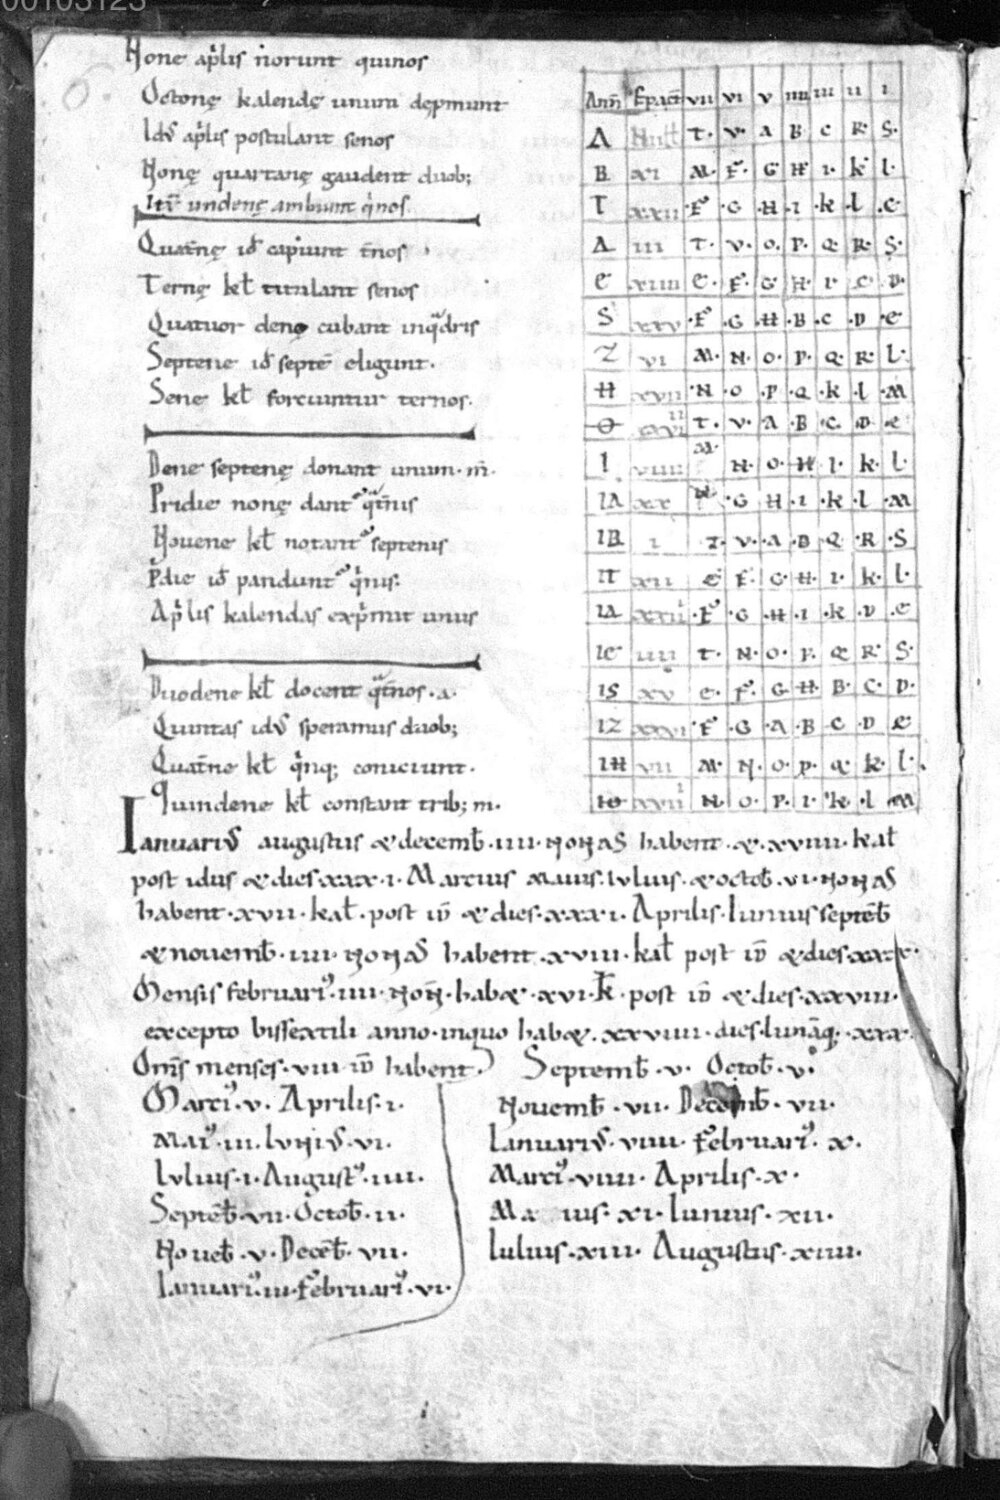 00103123
Nonę ap̃lis norunt quinos
Octonę kalendę unum dępmunt
Idus ap̃lis postulant senos
Nonę quartanę gaudent duob;
Itē undenę ambiunt q̇nos.
Quat̄nę id̄ capiunt t̄nos
Ternę kł titulant senos
Quatuor denę cubant inq̇dris
Septene id̄ septē eligunt.
Senę kł forciuntur ternos.
Dene septenę donant unum. m̄.
Pridie nonę dant q̇t̄nis
Nouene kł notant septenis
P̄die id̄ pandunt q̇nis.
Ap̃lis kalendas exp̄mit unus
Duodene kł docent q̇t̄nos. a.
Quintas idus speramus duob;
Quat̄ne kł q̇nq; coniciunt.
Quindene kł constant trib; m.
Ann̄ Epact̄ vii vi v iiii iii ii i
A Null T. V. A B C R S.
B xi M. F. G H I. K L.
Γ xxii F .G .H .I .K .L .E
Δ iii T. V. O. P. Q R. S.
E xiiii E. F. G. H. I. C D.
S xxv .F .G .H .B .C .D .E
Z vi M. N. O. P. Q. R. L.
H xvii .N .O .P .Q .K .L .M
Θ T. V. A .B C. D. E
I viiii M. N. O. H I. K. L.
IA xx N .G H .I .K .L .M
IB i T. V. A .B Q .R .S
IΓ xii E F. G. H. I. K. L.
IΔ xxiii .F .G .H .I .K .D .E
IE iiii T. N. O. P. Q R. S.
IS xv E. F. G H. B. C. D.
IZ xxvi F .G .A .B C .D E
IH vii M. N. O. P. Q. K. L.
IΘ xvii N. O. P. I. K .L M
Ianuarius augustus & decemb̄. iiii. NONAS habent. &. xviiii. kał
post idus & dies xxx. i. Marcius maius. Iulius. & octob̄. vi. NONAS
habent. xvii. kał. post id̄ & dies. xxxi. Aprilis. Iunius septēb̄
& nouemb̄. iiii. NONAS habent. xviii. kał post id̄ & dies. xxx.
Mensis februari9. iiii. NON̄. hab&. xvi. k̄. post id̄ & dies. xxviii.
excepto bissextili anno. inquo hab&. xxviiii. dies. lunāq; xxx.
Om̄s menses. viii id̄ habent.
Marci9. v. Aprilis. i.
Mai9. iii. IUNIUS. vi.
Iulius. i. August9. iiii.
Septēb̄. vii. Octob̄. ii.
Nouēb̄. v. Decēb̄. vii.
Ianuari9. iii. februari9. vi.
Septemb̄. v. Octob̄. v.
Nouemb̄. vii. Decemb̄. vii.
Ianuarius. viiii. februari9. x.
Marci9. viiii. Aprilis. x.
Maius. xi. Iunius. xii.
Iulius. xiii. Augustus. xiiii.